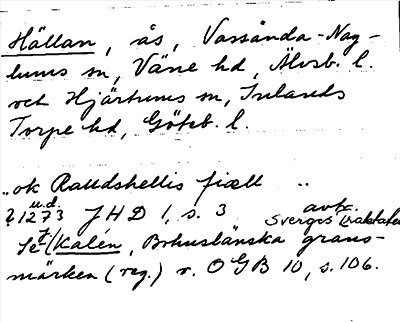 Hällan, ås, Vassända-Nag-
lums sn, Väne hd, Älvsb. l.
och Hjärtums sn, Inlands
Torpe hd, Göteb. l.
"ok Raudshellis fiæll "
u.d. avtr.
? 1273 JHD 1, s. 3 Sverges traktater
Se Kalén, Bohuslänska gräns-
märken (reg.) r. OGB 10, s. 106.